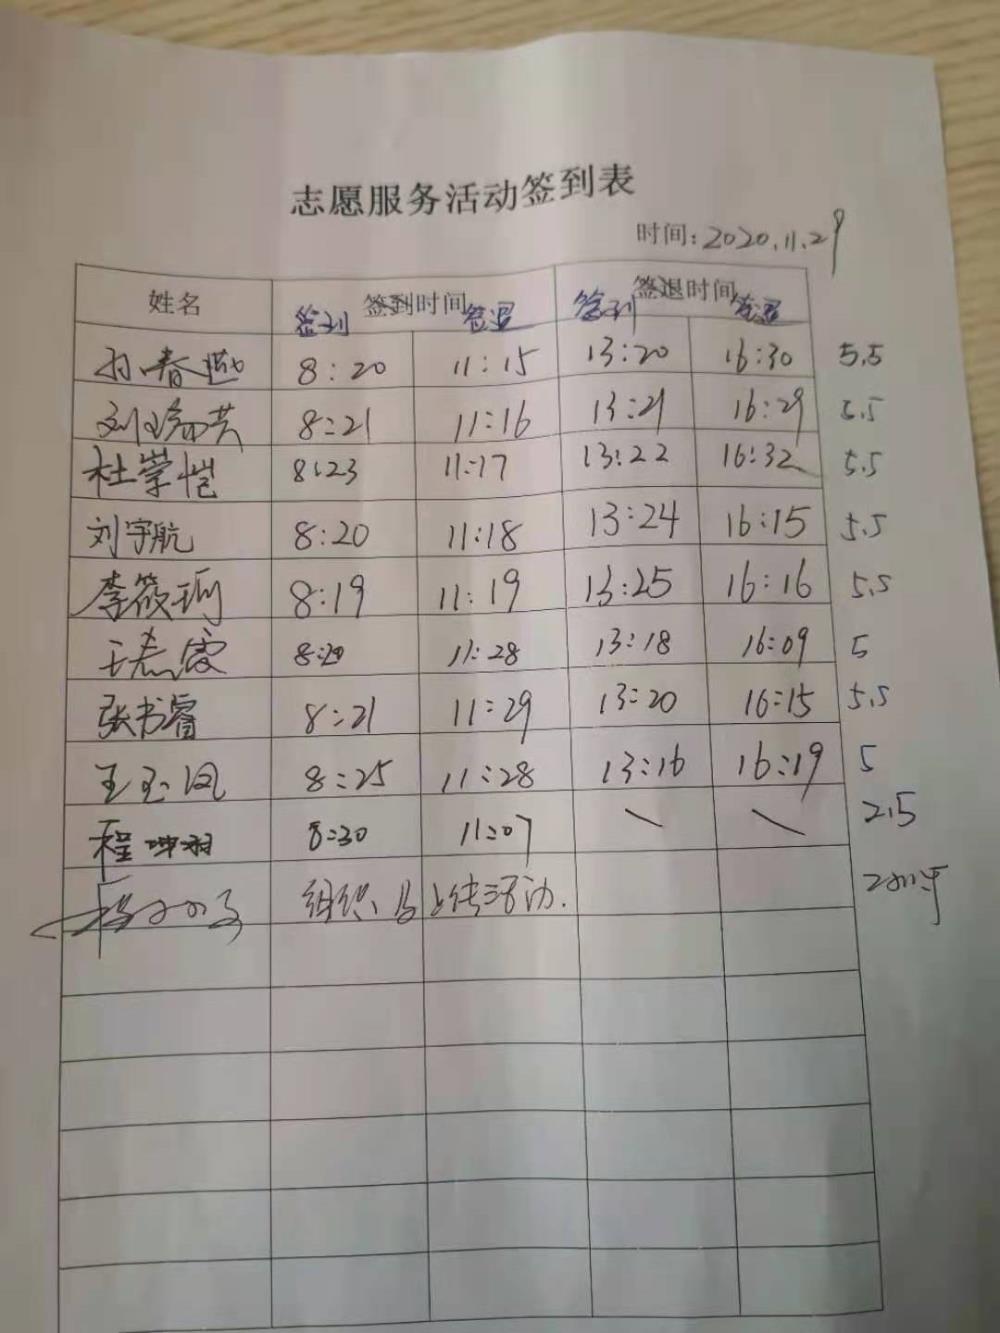 志愿服务活动签到表
时间:2020.11.29
姓名 签到时间 签退时间
签到 签退 签到 签退
孙春 8:20 11:15 13:20 16:30 5.5
刘 8:21 11:16 13:21 16:29 5.5
杜 恺 8:23 11:17 13:22 16:32 5.5
刘宇航 8:20 11:18 13:24 16:15 5.5
李筱珂 8:19 11:19 13:25 16:16 5.5
王志霞 8:20 11:28 13:18 16:09 5
张书睿 8:21 11:29 13:20 16:15 5.5
王玉凤 8:25 11:28 13:16 16:19 5
程坤羽 8:30 11:07 \ \ 2.5
组织、 上传活动.